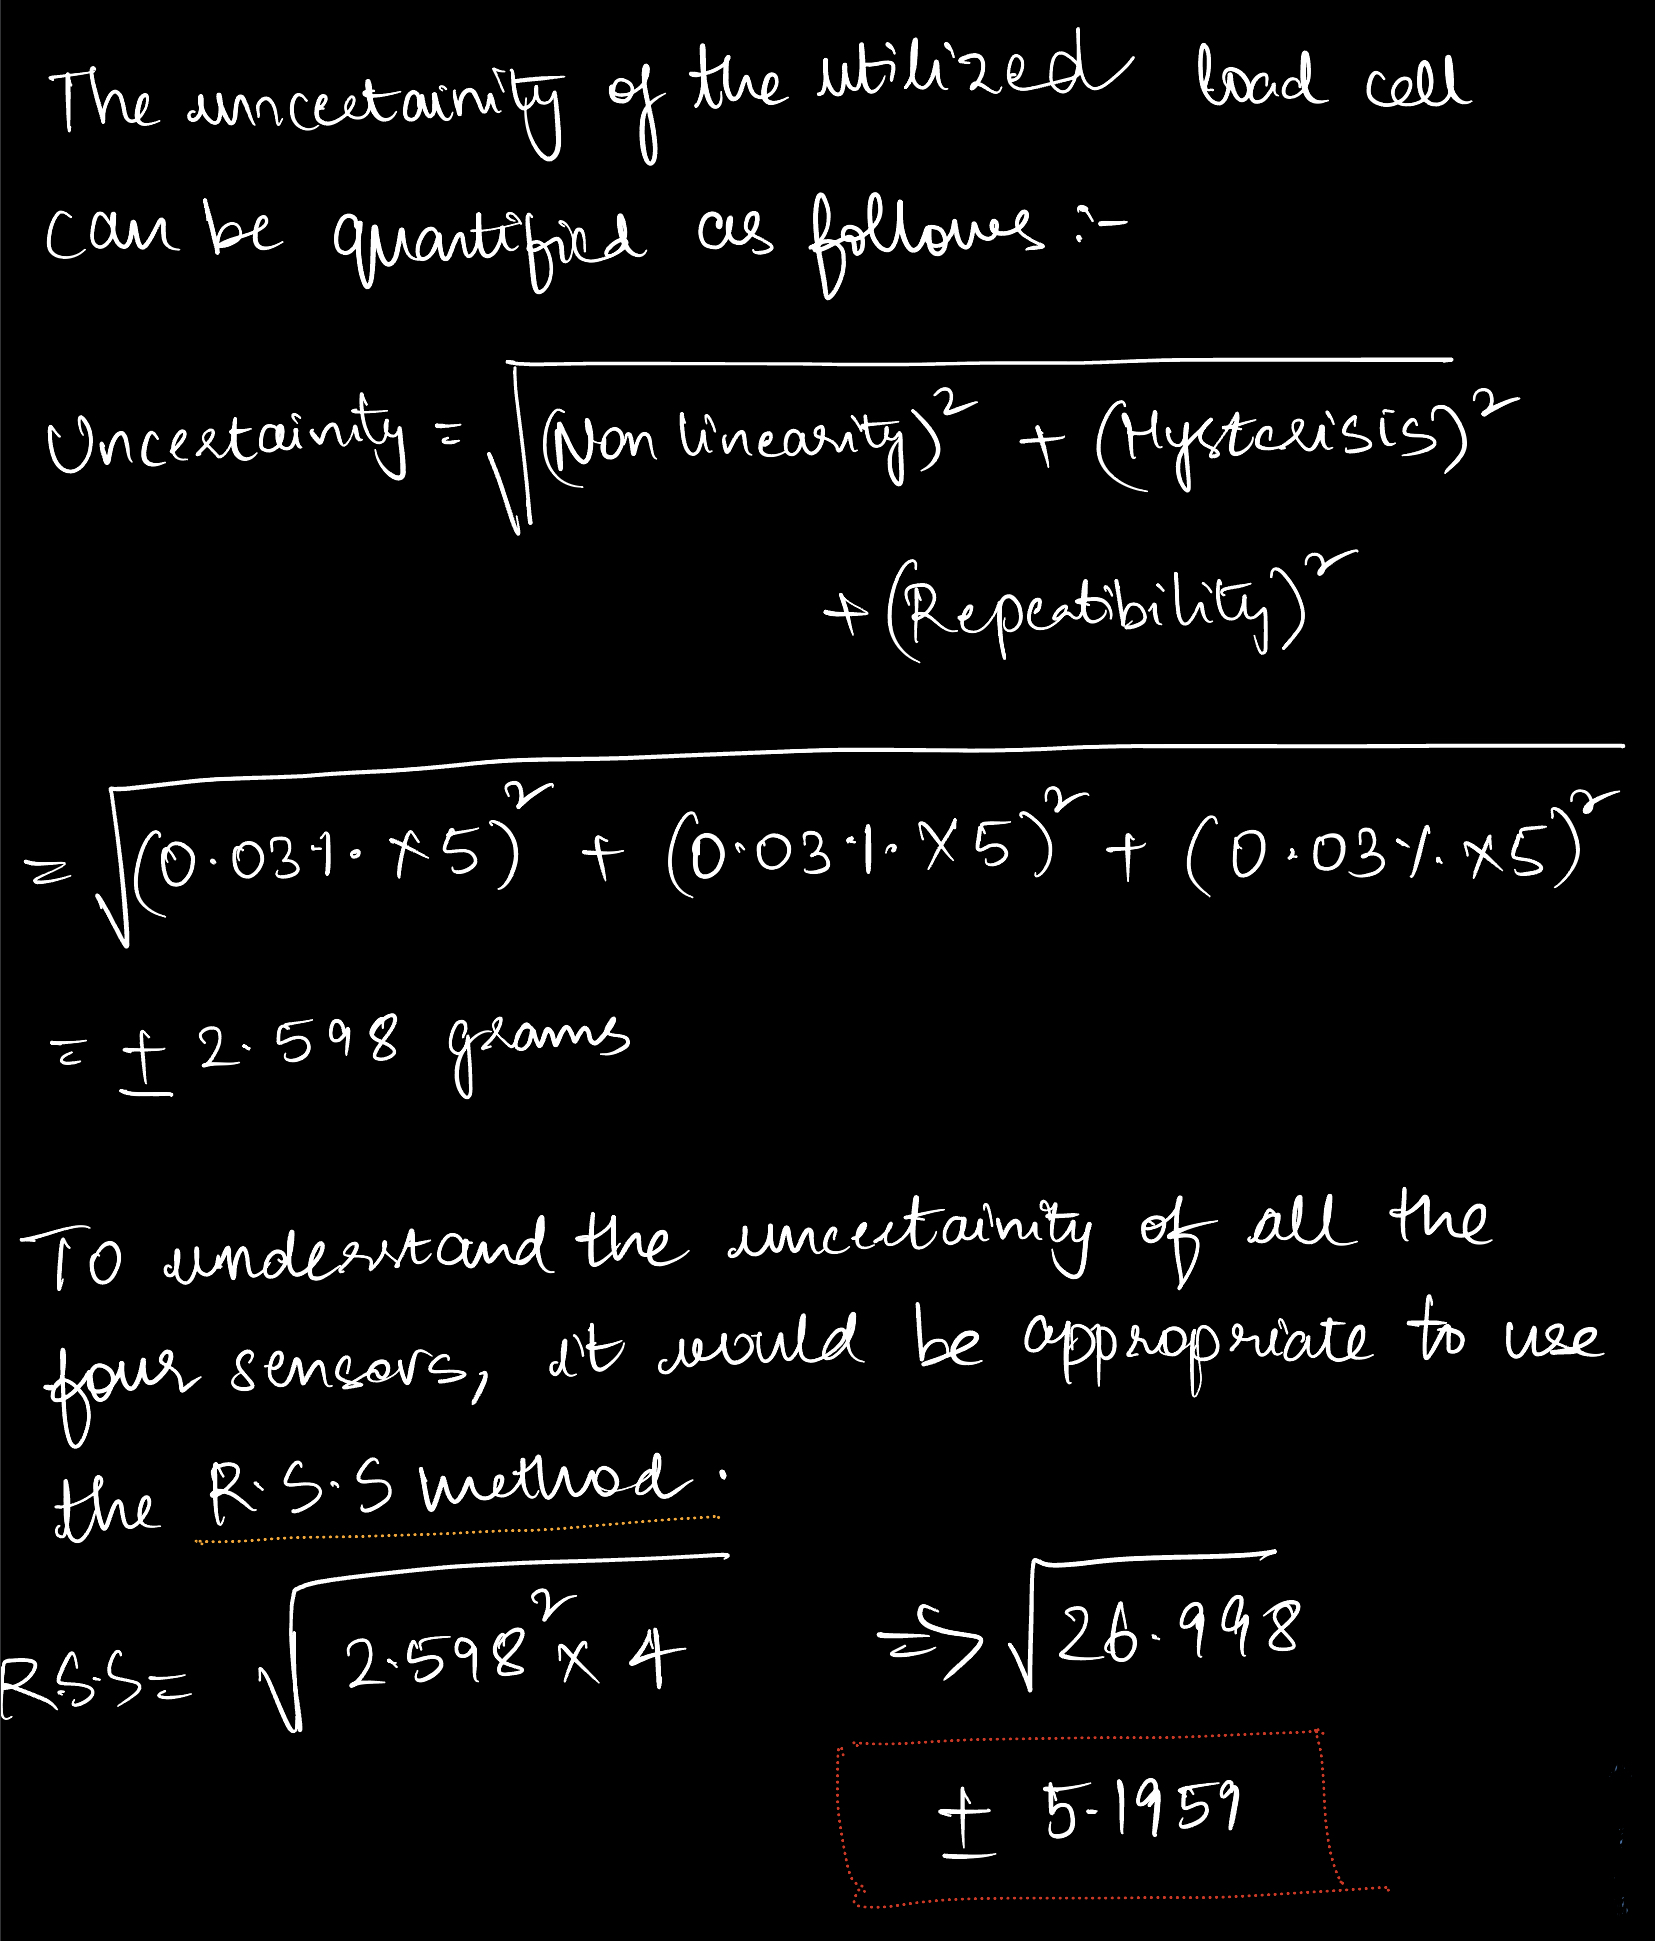 The uncertainity of the utilized load cell
can be quantified as follows :-
Uncertainity = √(Non linearity)² + (Hysterisis)²
+ (Repeatibility)²
= √(0.03% × 5)² + (0.03% × 5)² + (0.03% × 5)²
= ± 2.598 grams
To understand the uncertainity of all the
four sensors, it would be appropriate to use
the R.S.S method.
R.S.S = √2.598² × 4 ⇒ √26.998
± 5.1959